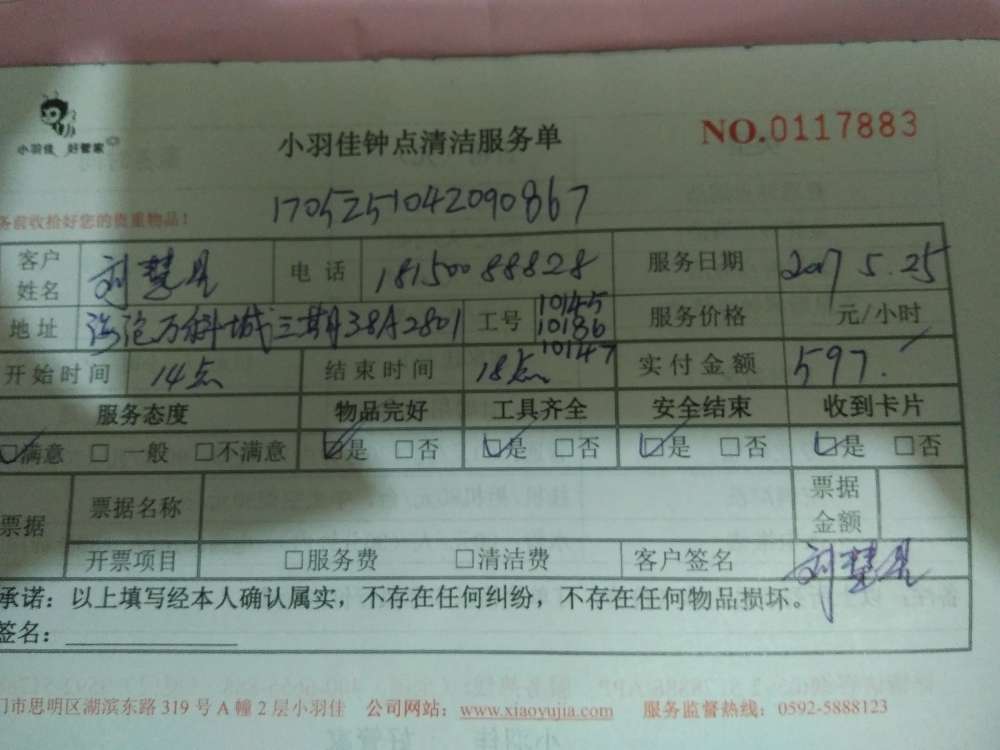 小羽佳 好管家
小羽佳钟点清洁服务单
NO.0117883
1705251042090867
务前收拾好您的贵重物品！
客户姓名 刘慧 电话 18150088828 服务日期 2017 5.25
地址 海沧万科城三期38A2801 工号 10145 10186 10147 服务价格 元/小时
开始时间 14点 结束时间 18点 实付金额 597.
服务态度 物品完好 工具齐全 安全结束 收到卡片
☑满意 □一般 □不满意 ☑是 □否 ☑是 □否 ☑是 □否 ☑是 □否
票据 票据名称 票据金额
开票项目 □服务费 □清洁费 客户签名 刘慧
承诺：以上填写经本人确认属实，不存在任何纠纷，不存在任何物品损坏。
签名：
门市思明区湖滨东路 319 号 A 幢 2 层小羽佳 公司网站：www.xiaoyujia.com 服务监督热线：0592-5888123